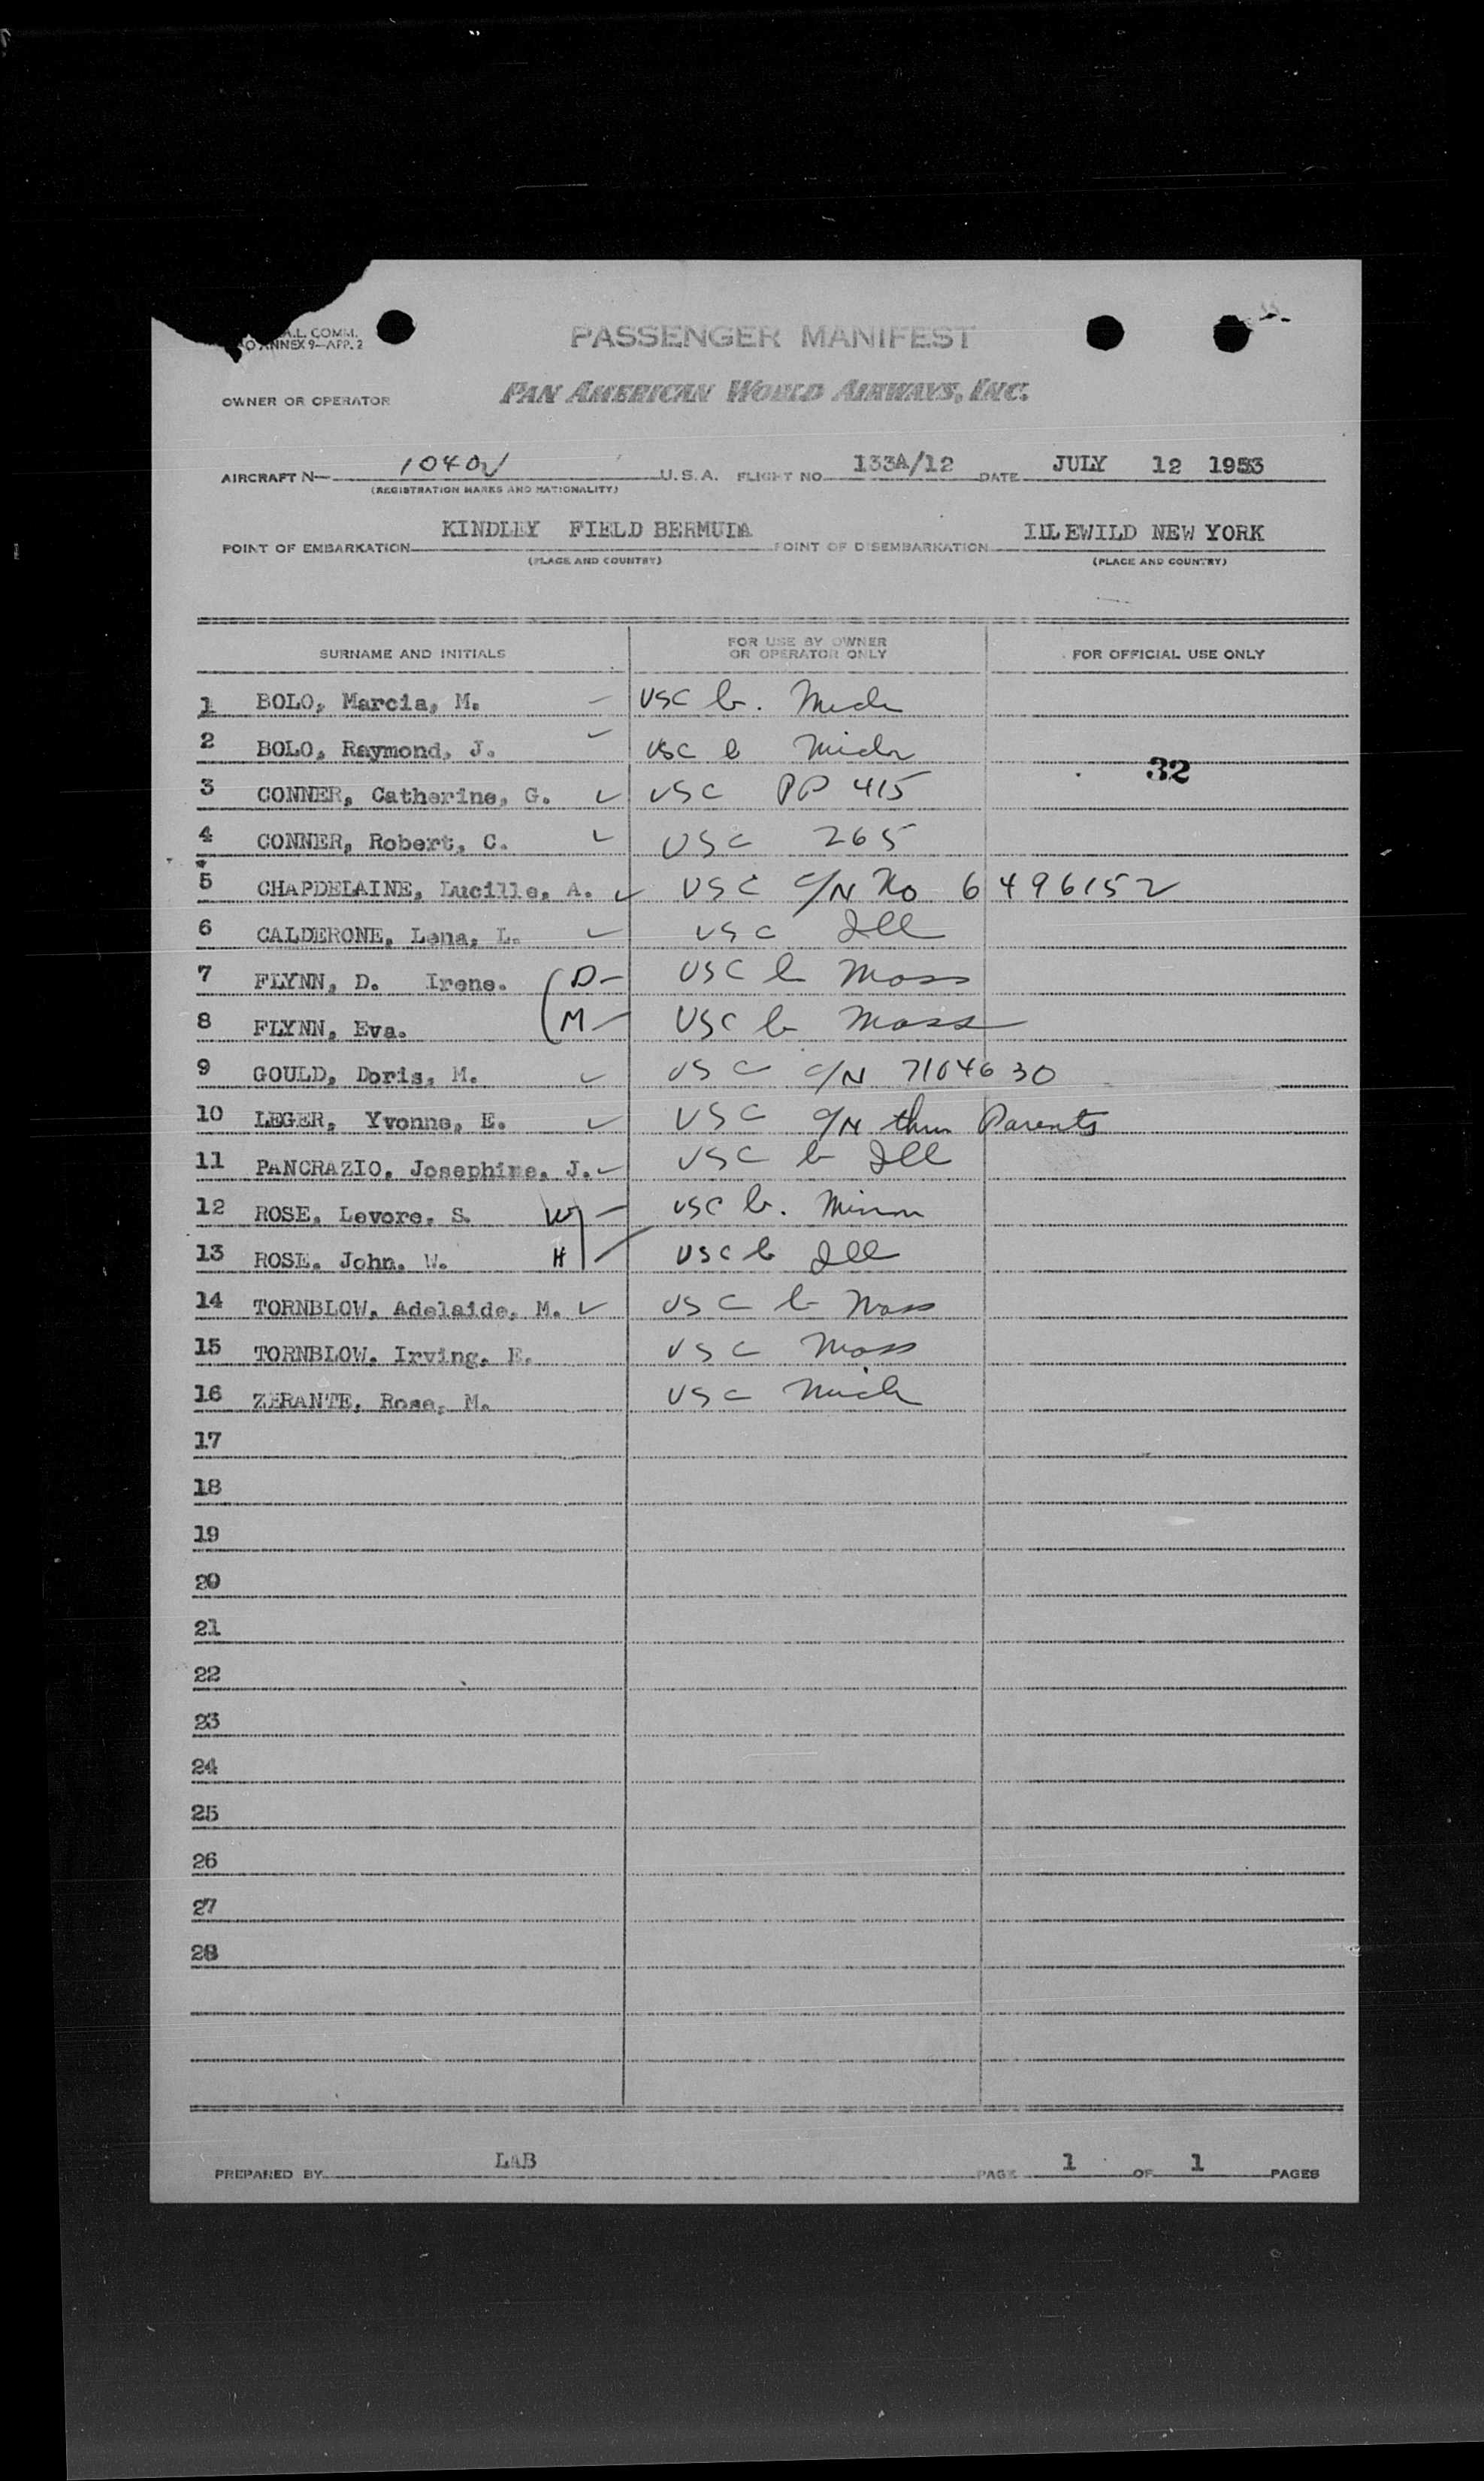 A.L. COMM.
O ANNEX 9—APP. 2
PASSENGER MANIFEST
OWNER OR OPERATOR PAN AMERICAN WORLD AIRWAYS, INC.
AIRCRAFT N— 1040V U.S.A. FLIGHT NO. 133A/12 DATE JULY 12 1953
(REGISTRATION MARKS AND NATIONALITY)
POINT OF EMBARKATION KINDLEY FIELD BERMUDA POINT OF DISEMBARKATION IDLEWILD NEW YORK
(PLACE AND COUNTRY) (PLACE AND COUNTRY)
SURNAME AND INITIALS FOR USE BY OWNER OR OPERATOR ONLY FOR OFFICIAL USE ONLY
1 BOLO, Marcia, M. – USC b. Mich
2 BOLO, Raymond, J. – USC b Mich
32
3 CONNER, Catherine, G. ✓ USC PP 415
4 CONNER, Robert, C. ✓ USC 265
5 CHAPDELAINE, Lucille, A. ✓ USC C/N No 6496152
6 CALDERONE, Lena, L. ✓ USC Ill
7 FLYNN, D. Irene. (D – USC b Mass
8 FLYNN, Eva. (M – USC b Mass
9 GOULD, Doris, M. ✓ USC C/N 7104630
10 LEGER, Yvonne, E. ✓ USC C/N thru Parents
11 PANCRAZIO, Josephine, J. ✓ USC b Ill
12 ROSE, Levore, S. W – USC b. Minn
13 ROSE, John, W. H – USC b Ill
14 TORNBLOW, Adelaide, M. ✓ USC b Mass
15 TORNBLOW, Irving, E. USC Mass
16 ZERANTE, Rose, M. USC Mich
17
18
19
20
21
22
23
24
25
26
27
28
PREPARED BY LAB PAGE 1 OF 1 PAGES